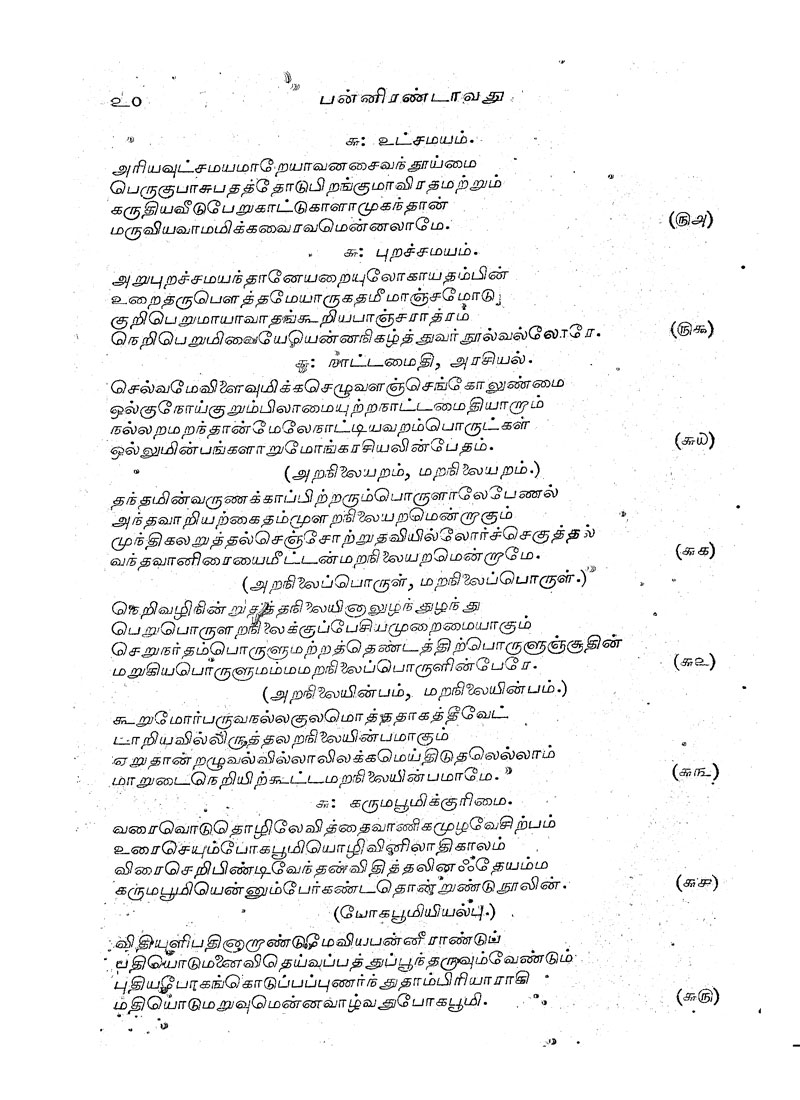 ௨0 பன்னிரண்டாவது
௬: உட்சமயம்.
அரியவுட்சமயமாறேயாவனசைவந்தூய்மை
பெருகுபாசுபதத்தோடுபிறங்குமாவிரதமற்றும்
கருதியவீடுபேறுகாட்டுகாளாமுகந்தான்
மருவியவாமமிக்கவைரவமென்னலாமே. (௫௮)
௬: புறச்சமயம்.
அறுபுறச்சமயந்தானேயறையுலோகாயதம்பின்
உறைதருபௌத்தமேயாருகதமீமாஞ்சமோடு
குறிபெறுமாயாவாதங்கூறியபாஞ்சராத்ரம்
நெறிபெறுமிவையேயென்னநிகழ்த்துவர்நூல்வல்லோரே. (௫௯)
௬: நாட்டமைதி, அரசியல்.
செல்வமேவிளைவுமிக்கசெழுவளஞ்செங்கோலுண்மை
ஒல்குநோய்குறும்பிலாமையுற்றநாட்டமைதியாறாம்
நல்லறமறந்தான்மேலேநாட்டியவறம்பொருட்கள்
ஒல்லுமின்பங்களாறுமோங்கரசியலின்பேதம். (௬௰)
(அறநிலையறம், மறநிலையறம்.)
தந்தமின்வருணக்காப்பிற்றரும்பொருளாலேபேணல்
அந்தவாறியற்கைதம்முளறநிலையறமென்றாகும்
முந்திகலறுத்தல்செஞ்சோற்றுதவியில்லோர்ச்செகுத்தல்
வந்தவானிரையைமீட்டன்மறநிலையறமென்றாமே. (௬௧)
(அறநிலைப்பொருள், மறநிலைப்பொருள்.)
நெறிவழிநின்றுதத்தநிலையினாலுழந்துழந்து
பெறுபொருளறநிலைக்குப்பேசியமுறைமையாகும்
செறுநர்தம்பொருளுமற்றத்தெண்டத்திற்பொருளுஞ்சூதின்
மறுகியபொருளுமம்மமறநிலைப்பொருளின்பேரே. (௬௨)
(அறநிலையின்பம், மறநிலையின்பம்.)
கூறுமோர்பருவநல்லகுலமொத்ததாகத்தீவேட்
டாறியவில்லிருத்தலறநிலையின்பமாகும்
ஏறுதான்றழுவல்வில்லாவிலக்கமெய்திடுதலெல்லாம்
மாறுடைநெறியிற்கூட்டமறநிலையின்பமாமே. (௬௩)
௬: கருமபூமிக்குரிமை.
வரைவொடுதொழிலேவித்தைவாணிகமுழவேசிற்பம்
உரைசெயும்போகபூமியொழிவினிலாதிகாலம்
விரைசெறிபிண்டிவேந்தன்விதித்தலினஃதேயம்ம
கருமபூமியென்னும்பேர்கண்டதொன்றுண்டுநூலின். (௬௪)
(போகபூமியியல்பு.)
விதியுளிபதினாறாண்டுமேவியபன்னீராண்டுப்
பதியொடுமனைவிதெய்வுப்பத்துப்பூந்தருவும்வேண்டும்
புதியபோகங்கொடுப்பப்புணர்ந்துதாம்பிரியாராகி
மதியொடுமறுவுமென்னவாழ்வதுபோகபூமி. (௬௫)